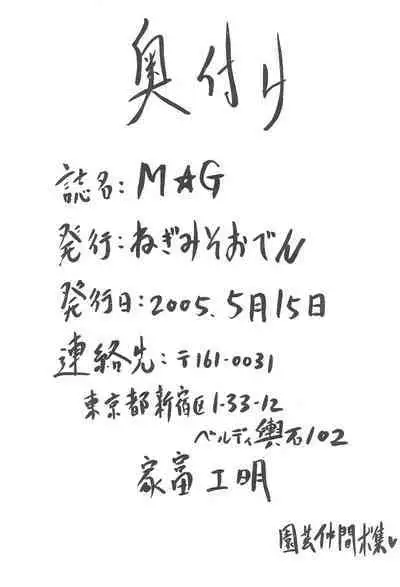 奥付け
誌名：M★G
発行：ねぎみそおでん
発行日：2005.5月15日
連絡先：〒161-0031
東京都新宿区1-33-12
ベルディ輿石102
家富工明
園芸仲間求集♥